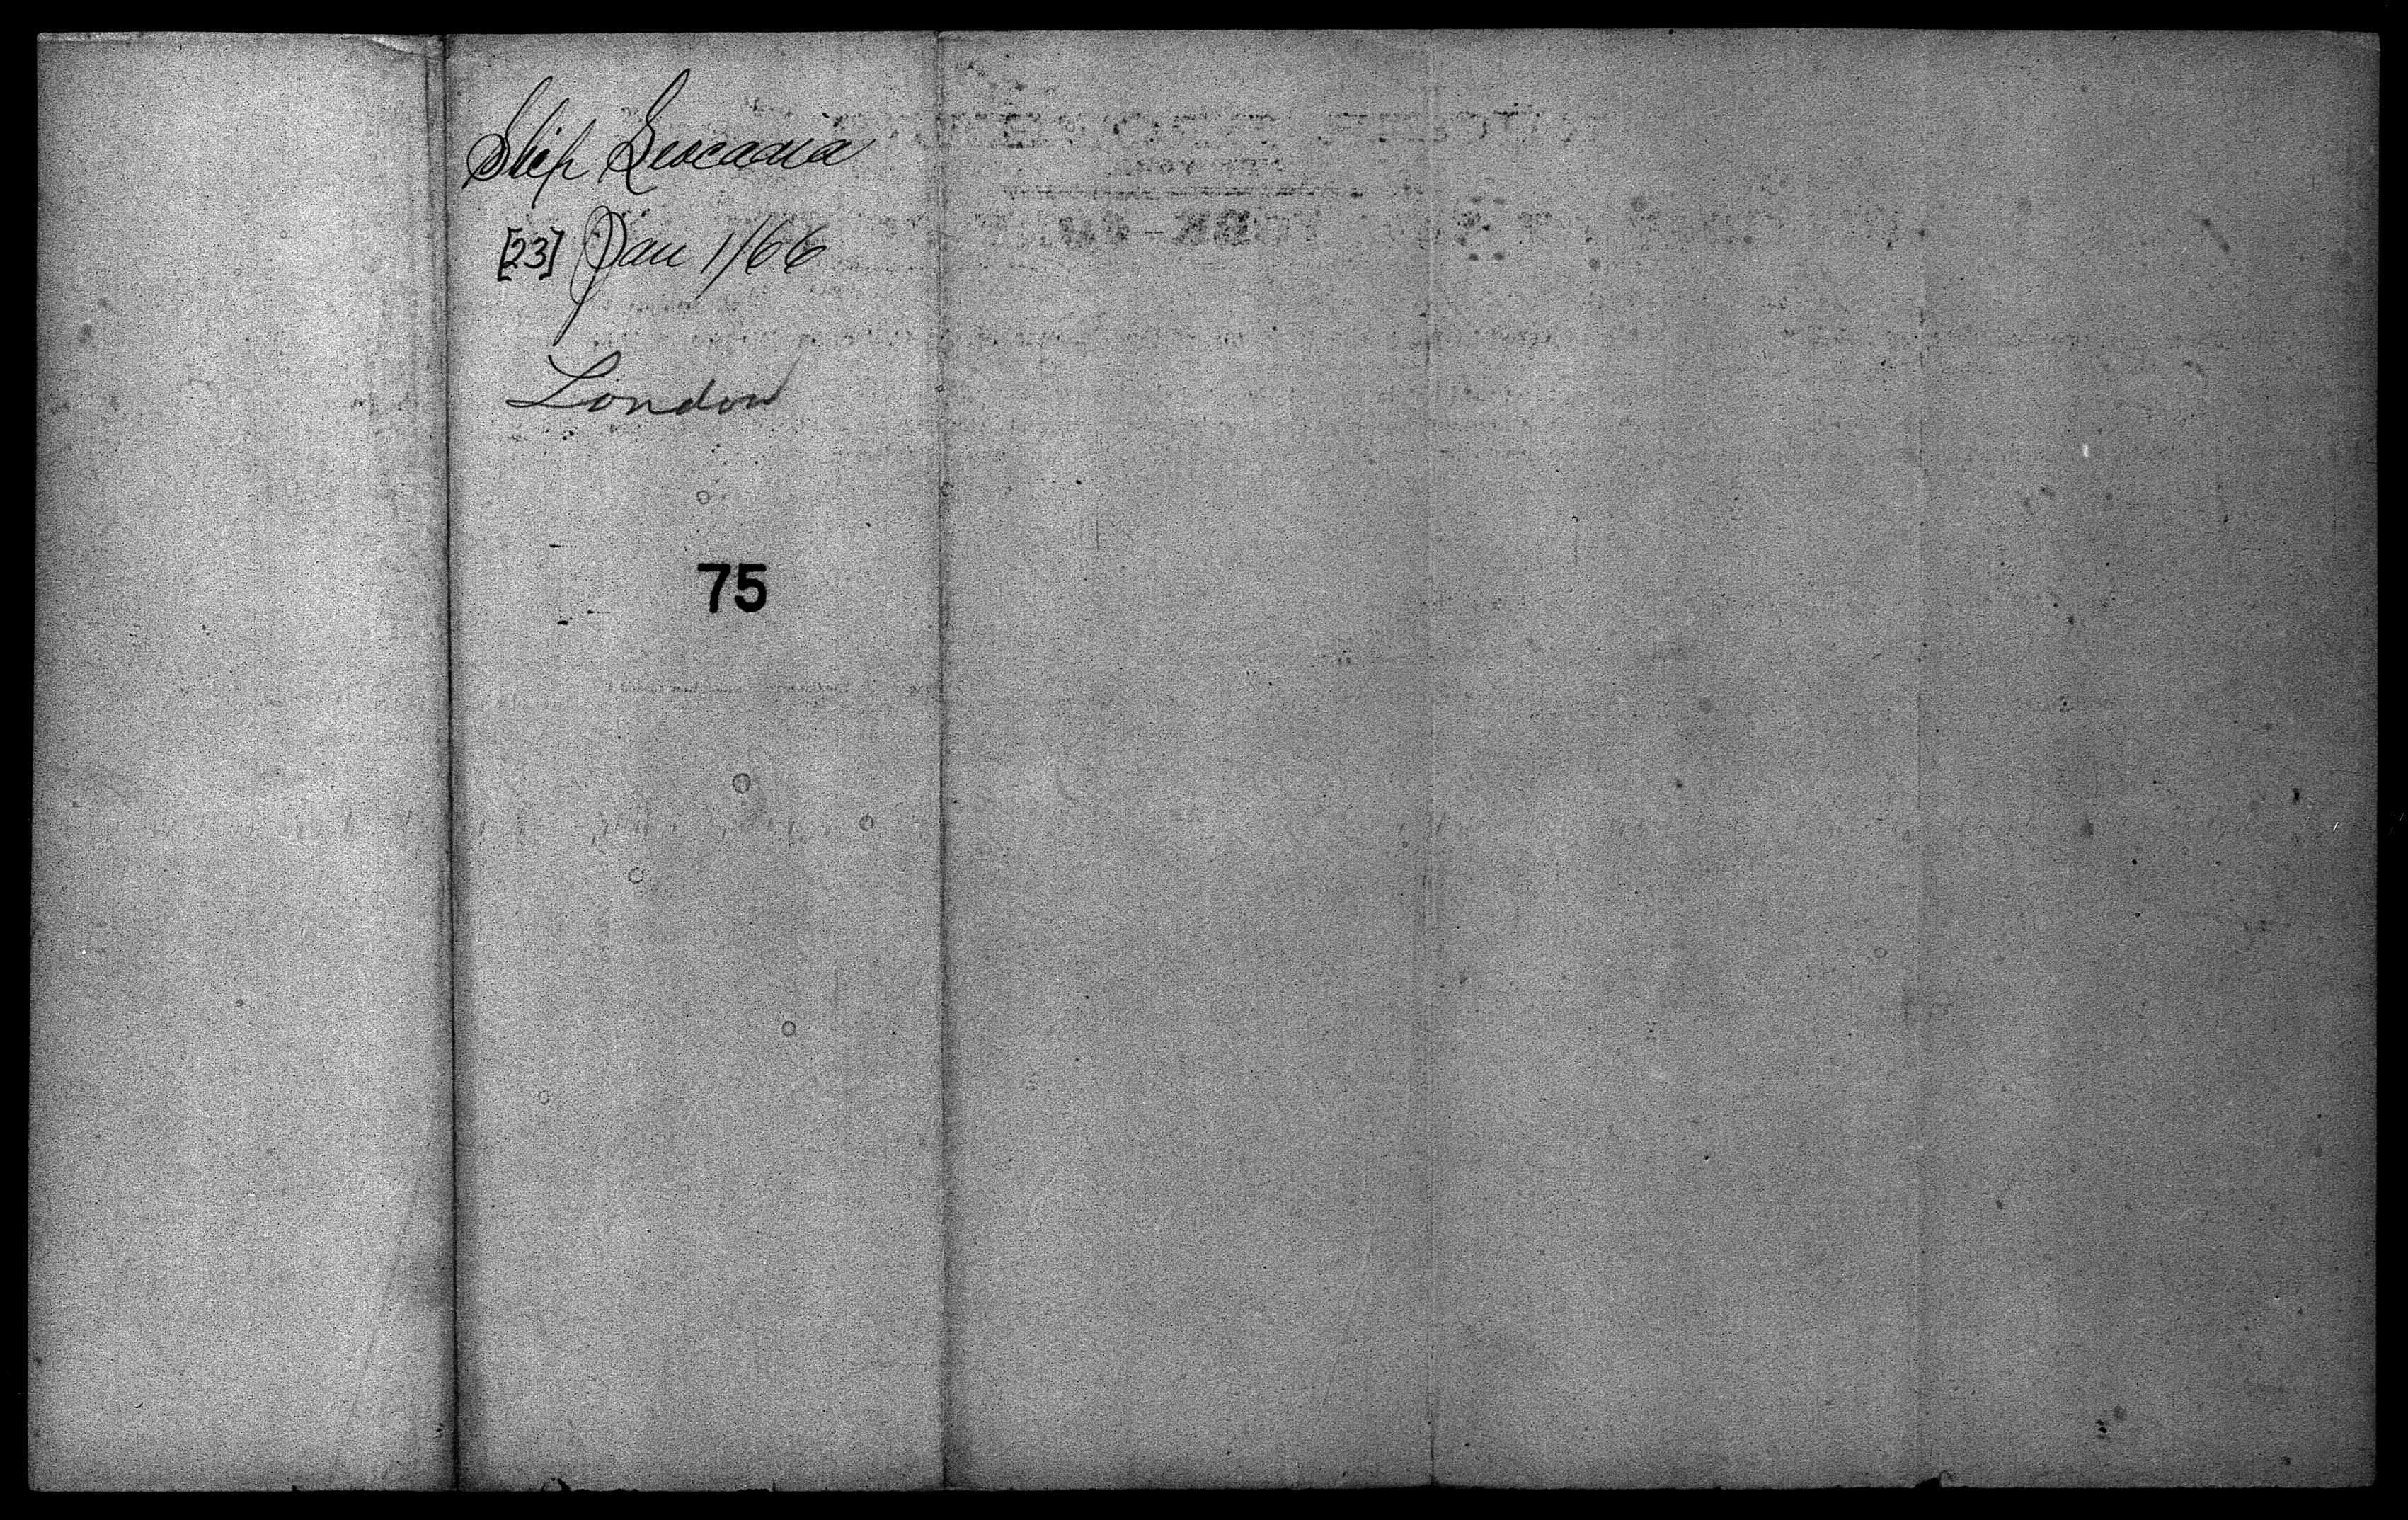 Ship Leocadia
[23] Jan 1/66
London
75